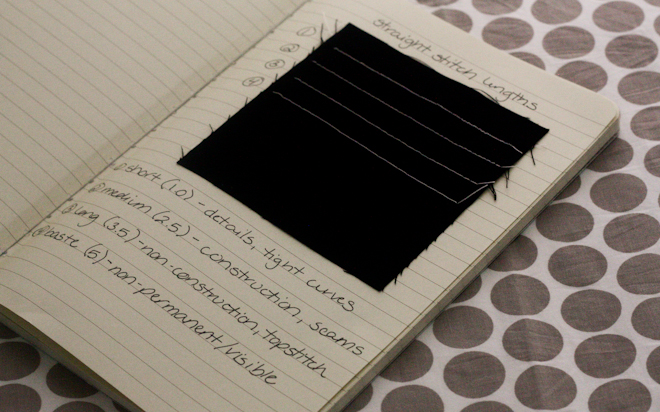 straight stitch lengths
①
②
③
④
① short (1.0) - details, tight curves
② medium (2.5) - construction, seams
③ long (3.5) - non-construction, topstitch
④ baste (5) - non-permanent/visible